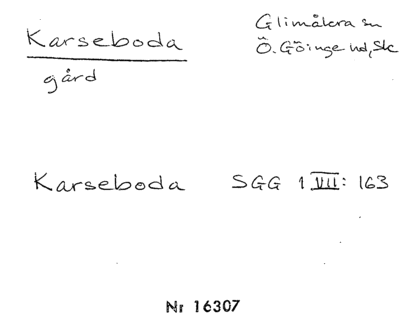 Karseboda
gård
Glimåkra sn
Ö. Göinge hd, Sk
Karseboda SGG 1 VII: 163
Nr 16307